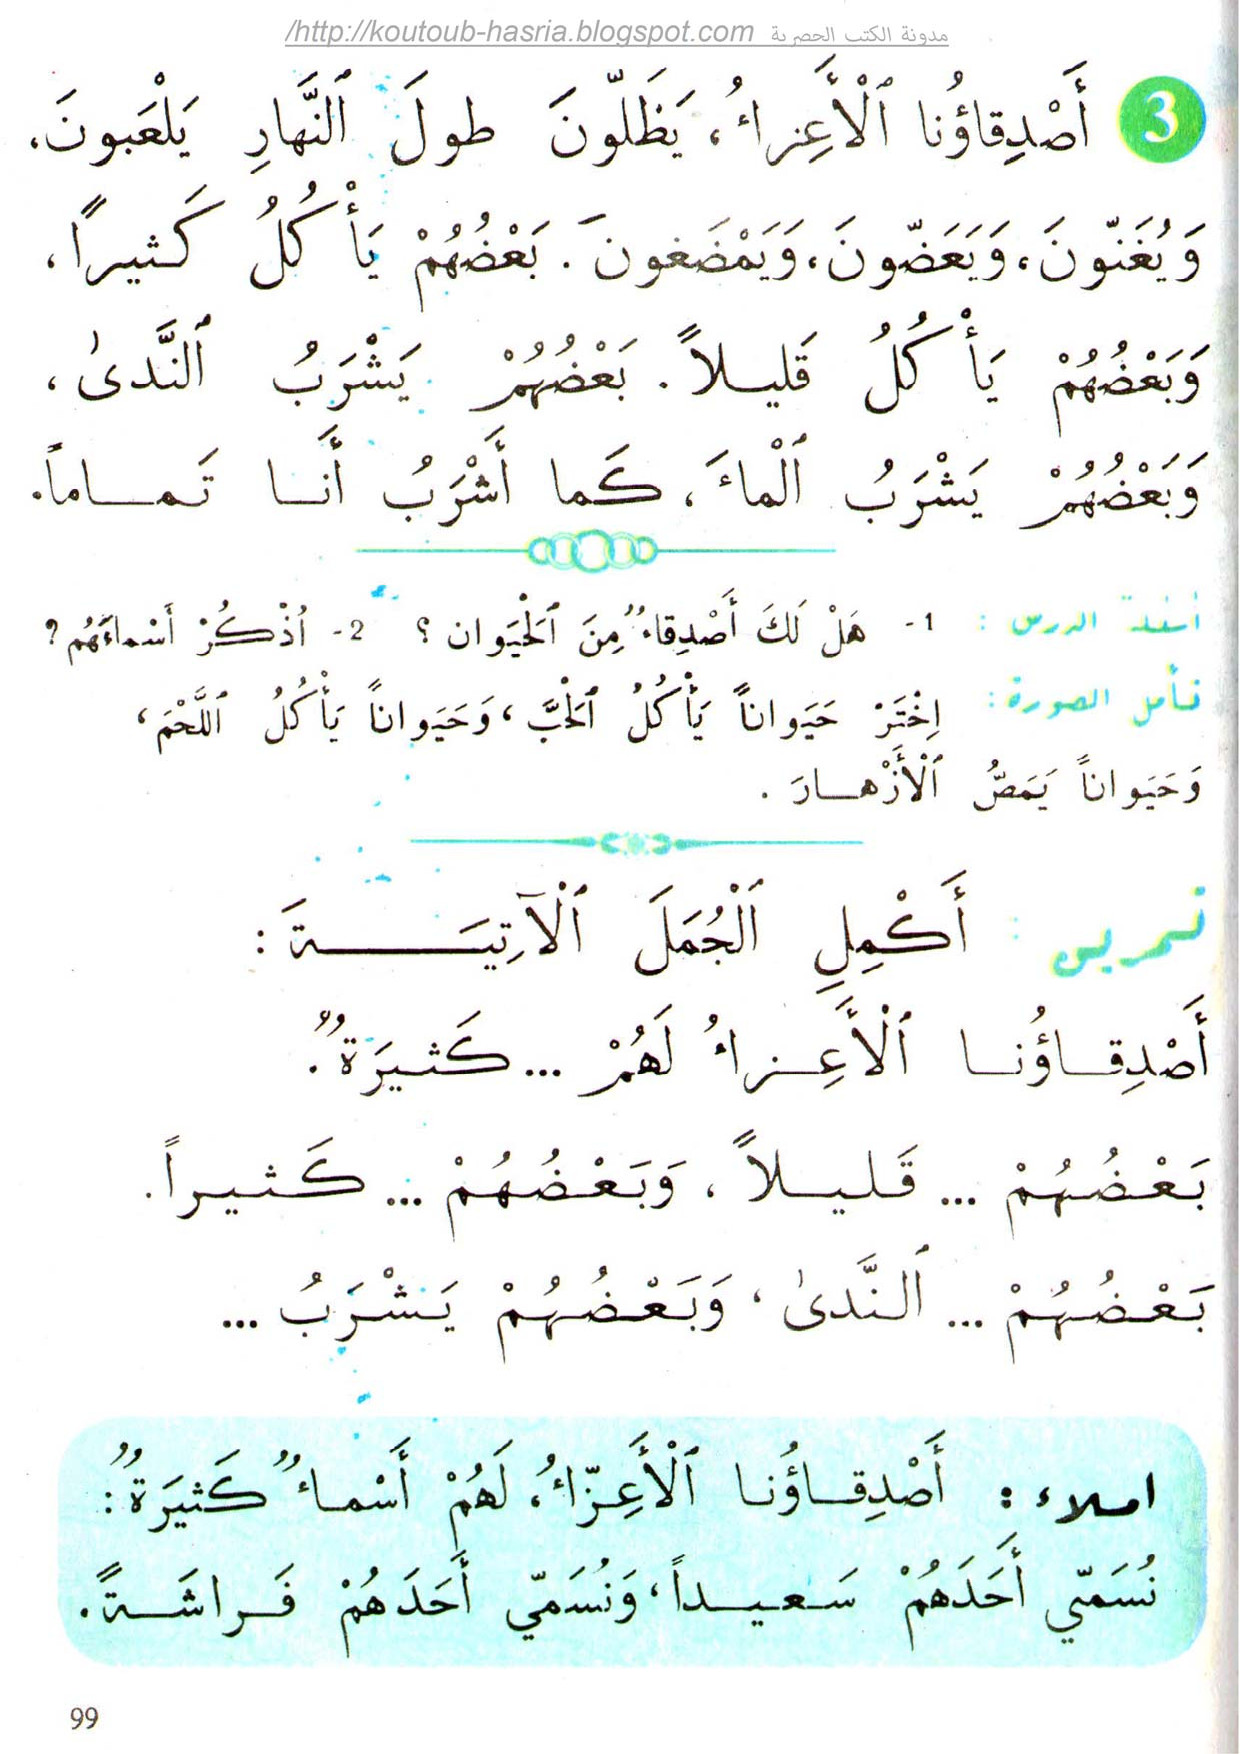 مدونة الكتب الحصرية http://koutoub-hasria.blogspot.com/
3 أَصْدِقاؤُنا ٱلْأَعِزاءُ، يَظَلّونَ طولَ ٱلنَّهارِ يَلْعَبونَ.
وَيُغَنّونَ، وَيَعَضّونَ، وَيَمْضَغونَ. بَعْضُهُمْ يَأْكُلُ كَثيراً،
وَبَعْضُهُمْ يَأْكُلُ قَليلاً. بَعْضُهُمْ يَشْرَبُ ٱلنَّدىٰ،
وَبَعْضُهُمْ يَشْرَبُ ٱلْماءَ، كَما أَشْرَبُ أَنا تَماماً.
أسئلة الدرس : 1- هَلْ لَكَ أَصْدِقاءٌ مِنَ ٱلْحَيَوان ؟ 2- اُذْكُرْ أَسْماءَهُم ؟
تأمل الصورة : اِخْتَرْ حَيَواناً يَأْكُلُ ٱلْحَبَّ، وَحَيَواناً يَأْكُلُ ٱللَّحْمَ،
وَحَيَواناً يَمَصُّ ٱلْأَزْهارَ .
تمرين : أَكْمِلِ ٱلْجُمَلَ ٱلْآتِيَةَ :
أَصْدِقاؤُنا ٱلْأَعِزاءُ لَهُمْ ... كَثيرَةٌ.
بَعْضُهُمْ ... قَليلاً، وَبَعْضُهُمْ ... كَثيراً.
بَعْضُهُمْ ... ٱلنَّدىٰ، وَبَعْضُهُمْ يَشْرَبُ ...
املاء : أَصْدِقاؤُنا ٱلْأَعِزّاءُ، لَهُمْ أَسْماءٌ كَثيرَةٌ:
نُسَمّي أَحَدَهُمْ سَعيداً، وَنُسَمّي أَحَدَهُمْ فَراشَةً.
99